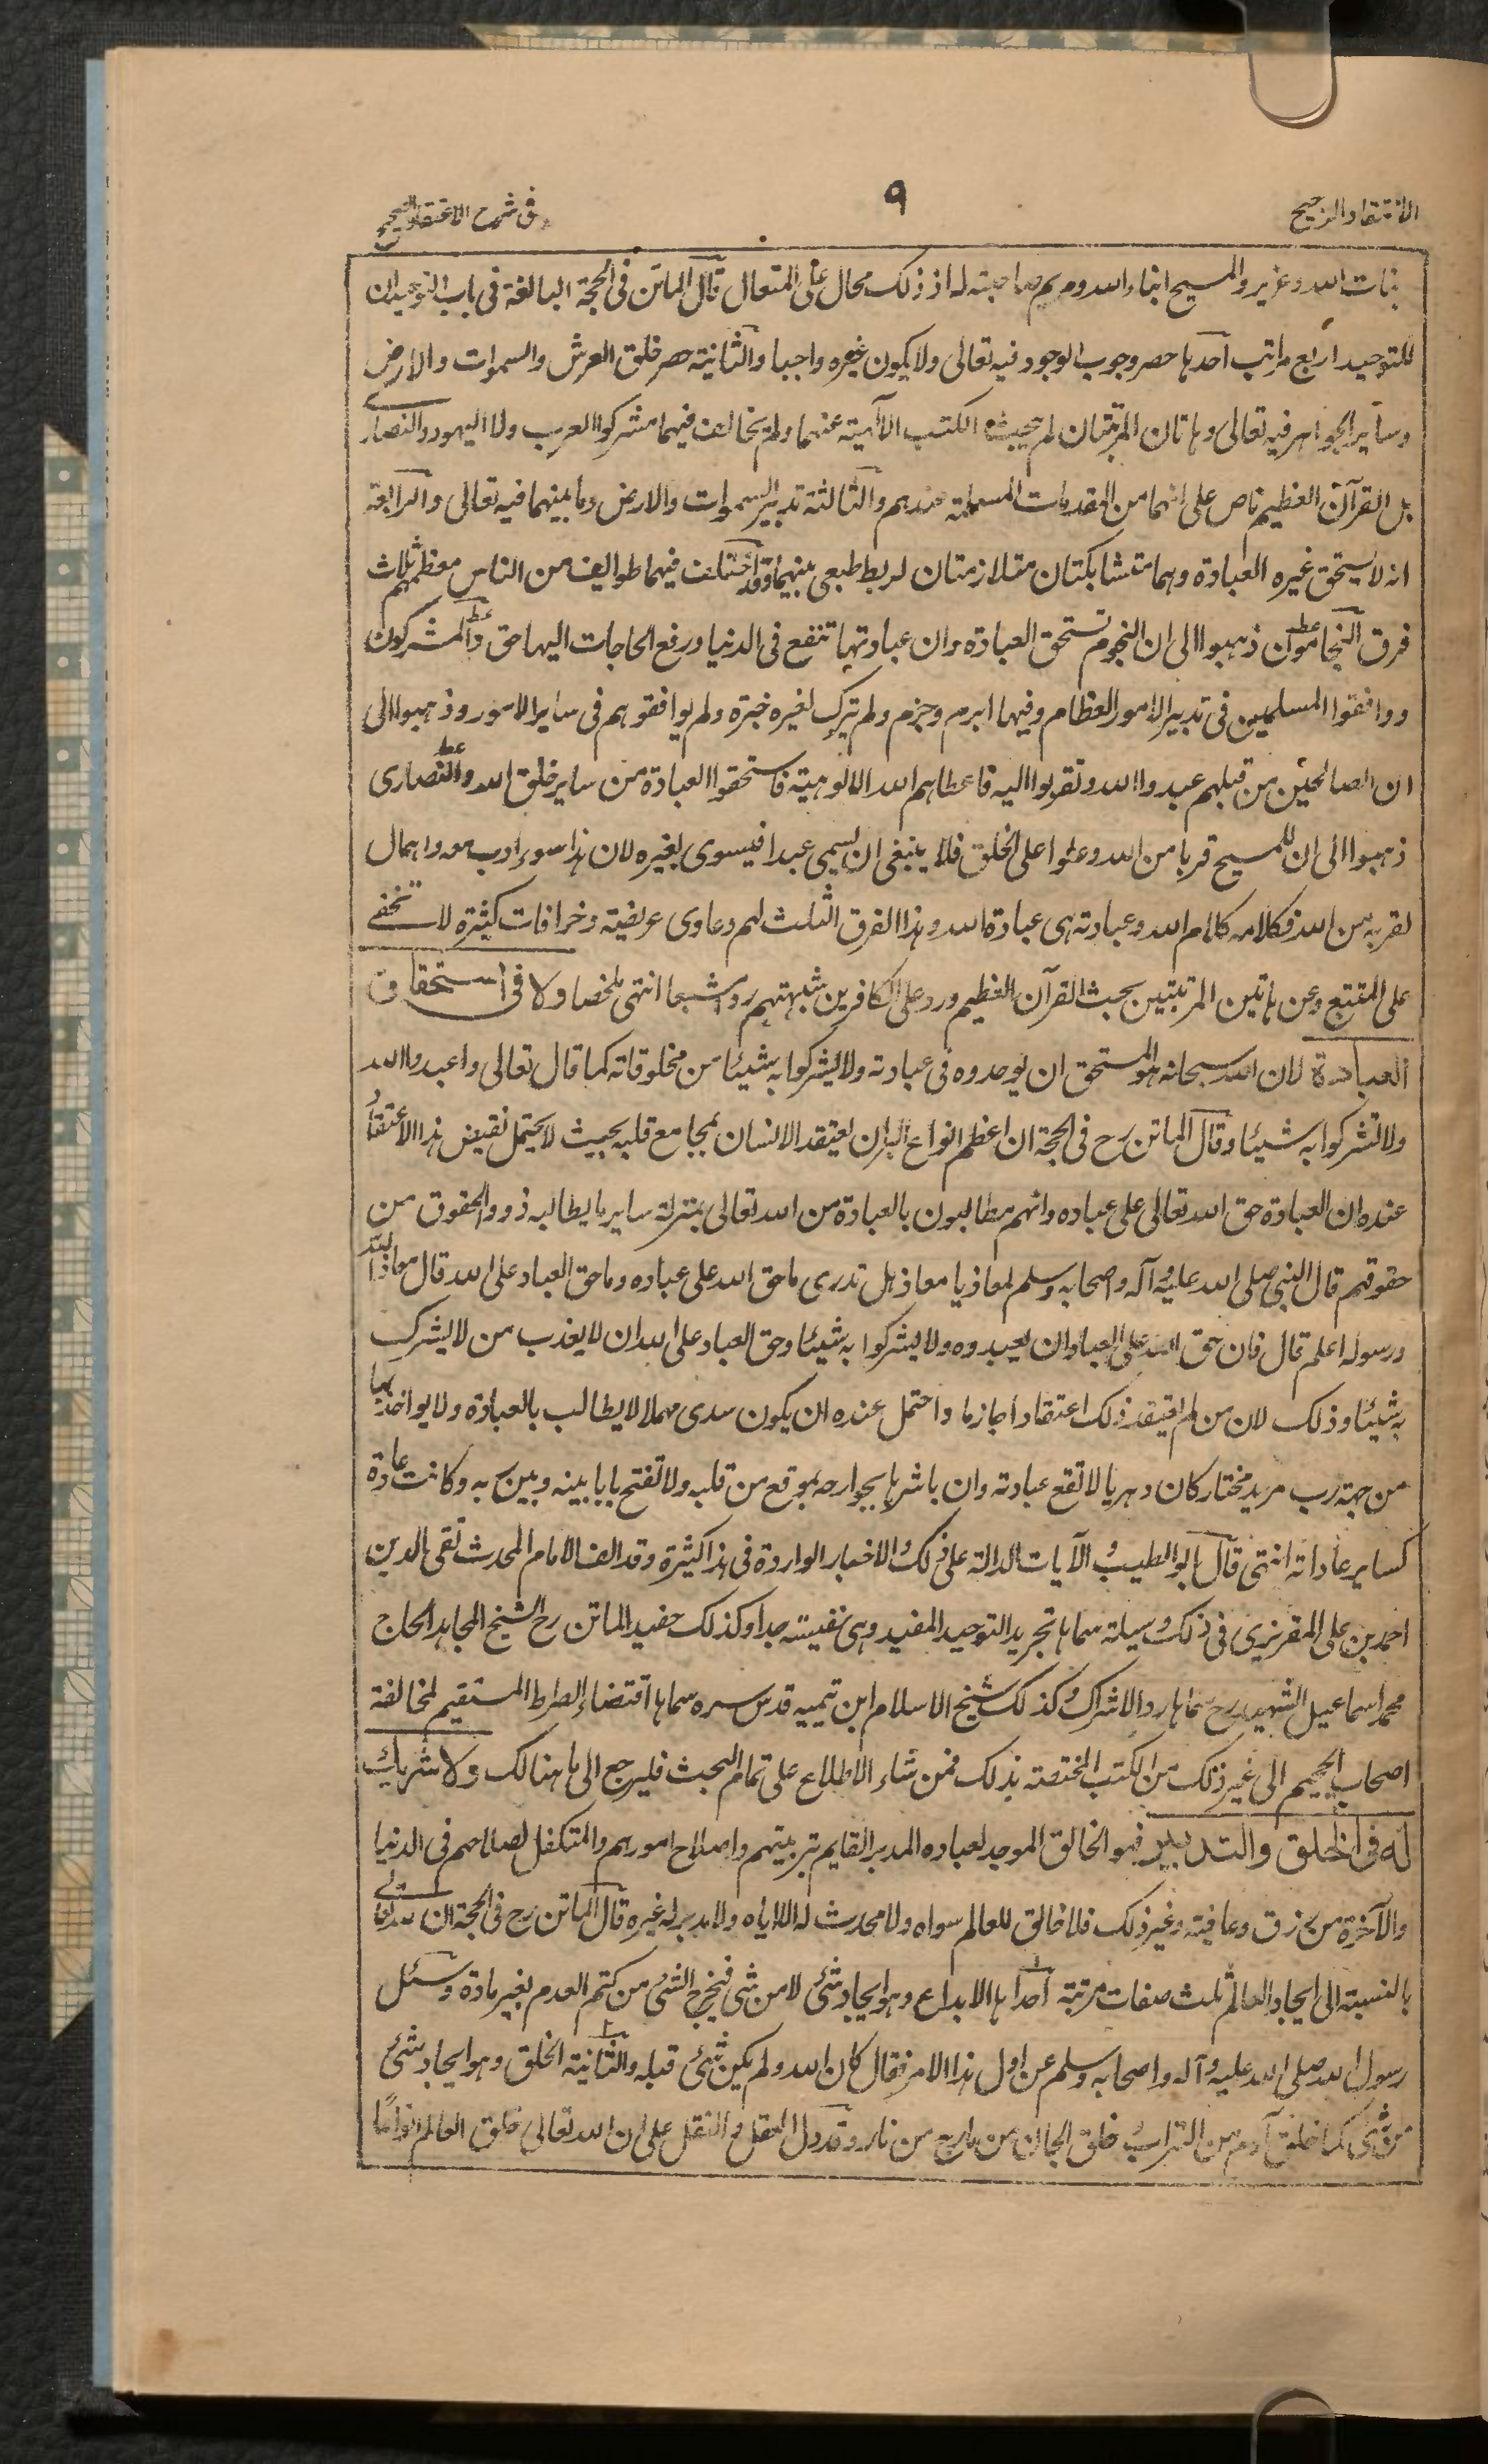 الانتقاد الرجيح
٩
فى شرح الاعتقاد الصحيح
بنات الله وعزير والمسيح ابناء الله ومريم صاحبته له اذ ذلك محال على المتعال قال الماتن فى الحجة البالغة فى باب التوحيد ان
للتوحيد اربع مراتب احدها حصر وجوب الوجود فيه تعالى ولا يكون غيره واجبا والثانية حصر خلق العرش والسموات والارض
وساير الجواهر فيه تعالى وهاتان المرتبتان لم يبحث الكتب الآلهية عنهما ولم يخالف فيهما مشركوا العرب ولا اليهود والنصارى
بل القرآن العظيم ناص على انهما من المقدمات المسلمة عندهم والثالثة تدبير السموات والارض وما بينهما فيه تعالى والرابعة
انه لا يستحق غيره العبادة وهما متشابكتان متلازمتان لربط طبعى بينهما وقد اختلف فيهما طوايف من الناس معظمهم ثلاث
فرق النجامون ذهبوا الى ان النجوم تستحق العبادة وان عبادتها تنفع فى الدنيا ورفع الحاجات اليها حق والمشركون
ووافقوا المسلمين فى تدبير الامور العظام وفيما ابرم وجزم ولم يترك لغيره خيرة ولم يوافقوهم فى ساير الامور وذهبوا الى
ان الصالحين من قبلهم عبدوا الله وتقربوا اليه فاعطاهم الله الالوهية فاستحقوا العبادة من ساير خلق الله والنصارى
ذهبوا الى ان للمسيح قربا من الله وعلوا على الخلق فلا ينبغى ان يسمى عبدا فيسوى بغيره لان هذا سوء ادب معه واهمال
لقربه من الله فكلامه كلام الله وعبادته هى عبادة الله وهذا الفرق الثلث لهم دعاوى عريضة وخرافات كثيرة لا تخفى
على المتتبع وعن هاتين المرتبتين بحث القرآن العظيم ورد على الكافرين شبهتهم ردا مشبعا انتهى ملخصا ولا فى استحقاق
العبادة لان الله سبحانه هو المستحق ان يوحدوه فى عبادته ولا يشركوا به شيئا من مخلوقاته كما قال تعالى واعبدوا الله
ولا تشركوا به شيئا وقال الماتن رح فى الحجة ان اعظم انواع البر ان يعتقد الانسان بمجامع قلبه بحيث لا يحتمل نقيض هذا الاعتقاد
عنده ان العبادة حق الله تعالى على عباده وانهم مطالبون بالعبادة من الله تعالى بمنزلة ساير ما يطالبه ذوو الحقوق من
حقوقهم قال النبى صلى الله عليه وآله واصحابه وسلم لمعاذ يا معاذ هل تدرى ما حق الله على عباده وما حق العباد على الله قال معاذ الله
ورسوله اعلم قال فان حق الله على العباد ان يعبدوه ولا يشركوا به شيئا وحق العباد على الله ان لا يعذب من لا يشرك
به شيئا وذلك لان من لم يعتقد ذلك اعتقادا جازما واحتمل عنده ان يكون سدى مهملا لا يطالب بالعبادة ولا يواخذ بها
من جهة رب مريد مختار كان دهريا لا تقع عبادته وان باشرها بجوارحه بموقع من قلبه ولا تفتح بابا بينه وبين ربه وكانت عادة
كساير عاداته انتهى قال ابو الطيب والآيات الدالة على ذلك والاخبار الواردة فى هذا كثيرة وقد الف الامام المحدث تقى الدين
احمد بن على المقريزى فى ذلك وسيلة سماها تجريد التوحيد المفيد وهى نفيسة جدا وكذلك حفيد الماتن رح الشيخ المجاهد الحاج
محمد اسماعيل الشهيد رح سماها رد الاشراك وكذلك شيخ الاسلام ابن تيمية قدس سره سماها اقتضاء الصراط المستقيم لمخالفة
اصحاب الجحيم الى غير ذلك من الكتب المختصة بذلك فمن شاء الاطلاع على تمام البحث فليرجع الى ما هنالك ولا شريك
له فى الخلق والتدبير فهو الخالق الموجد لعباده المدبر القايم بتربيتهم واصلاح امورهم والمتكفل لصلاحهم فى الدنيا
والآخرة من رزق وعافية وغير ذلك فلا خالق للعالم سواه ولا محدث له الا اياه ولا مدبر له غيره قال الماتن رح فى الحجة ان لله تعالى
بالنسبة الى ايجاد العالم ثلث صفات مرتبة احداها الابداع وهو ايجاد شئ لا من شئ فيخرج الشئ من كتم العدم بغير مادة وسئل
رسول الله صلى الله عليه وآله واصحابه وسلم عن اول هذا الامر فقال كان الله ولم يكن شئ قبله والثانية الخلق وهو ايجاد شئ
من شئ كما خلق آدم من التراب وخلق الجان من مارج من نار وقد دل العقل والنقل على ان الله تعالى خلق العالم انواعا